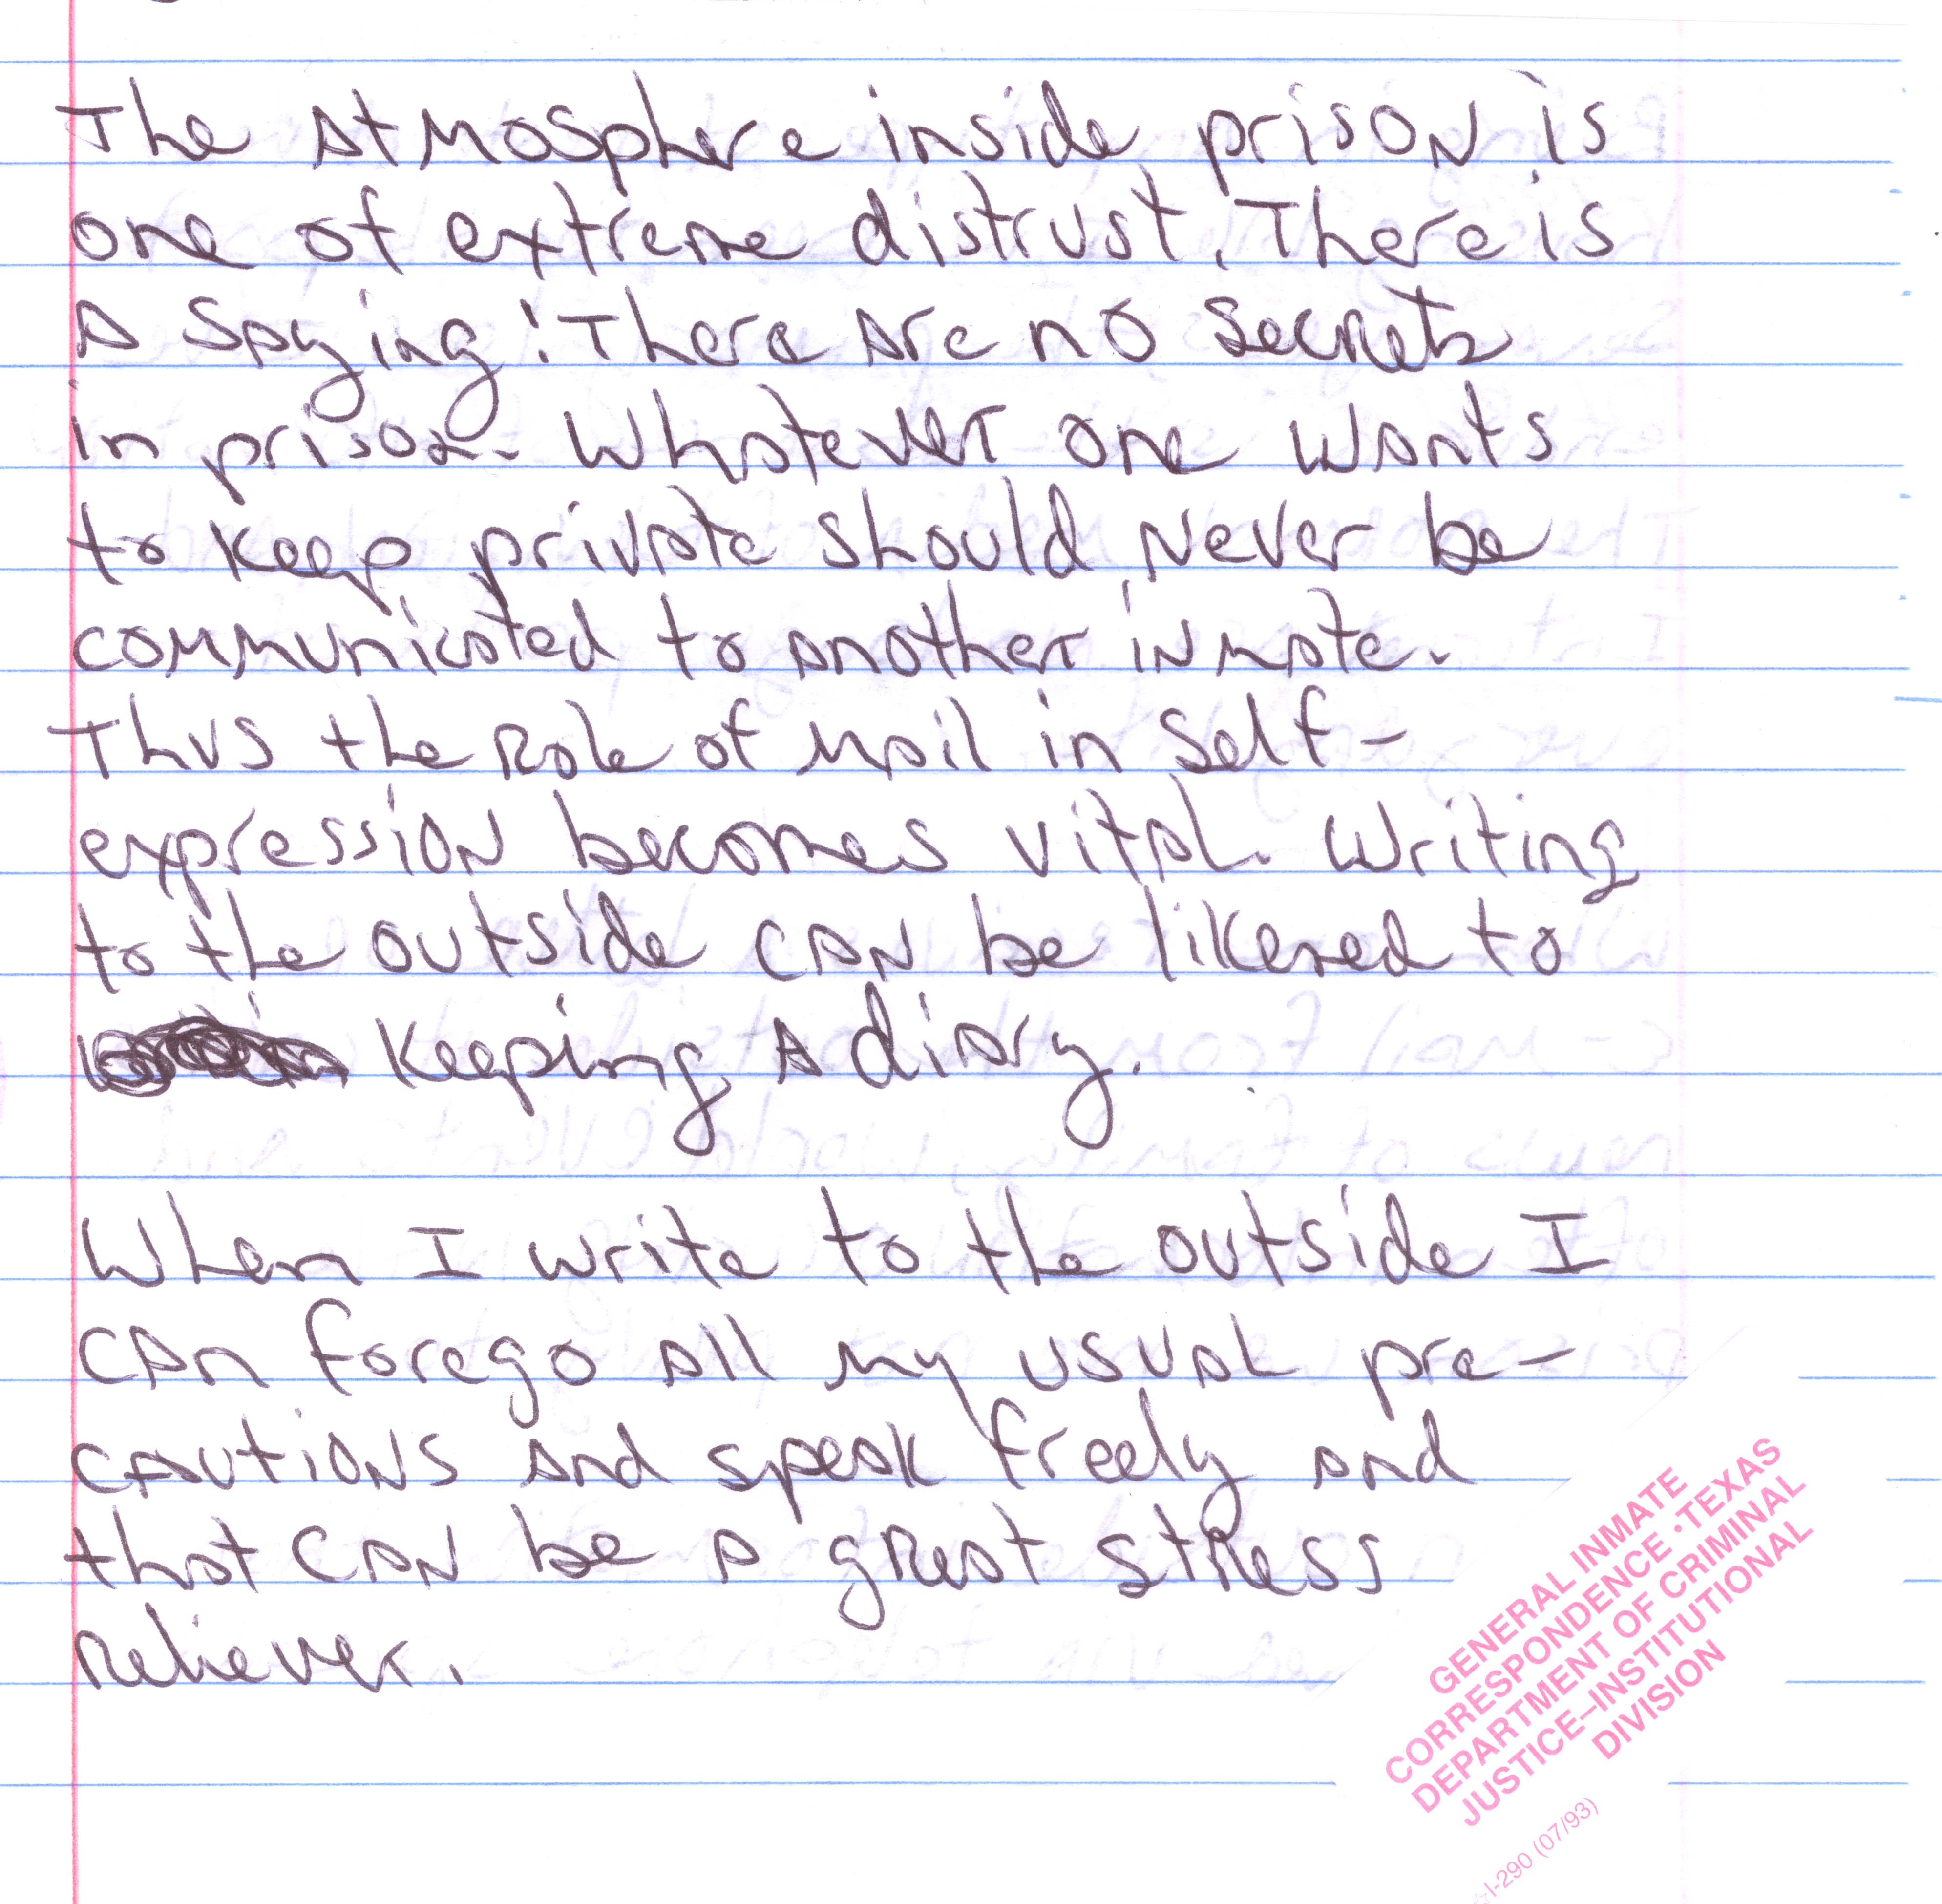 The Atmosphere inside prison is
one of extreme distrust. There is
A Saying: There are no secrets
in prison. Whatever one wants
to keep private should never be
communicated to another inmate.
Thus the Role of mail in self-
expression becomes vital. Writing
to the outside can be likened to
Keeping A diary.
When I write to the outside I
can forego all my usual pre-
cautions and speak freely and
that can be a great stress
reliever.
GENERAL INMATE
CORRESPONDENCE • TEXAS
DEPARTMENT OF CRIMINAL
JUSTICE–INSTITUTIONAL
DIVISION
I-290 (07/93)